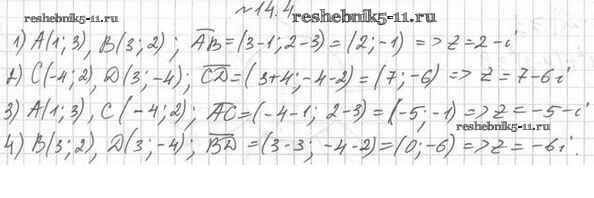 №14.4
reshebnik5-11.ru
reshebnik5-11.ru
1) A(1;3), B(3;2); AB=(3-1;2-3)=(2;-1) => z=2-i
2) C(-4;2), D(3;-4); CD=(3+4;-4-2)=(7;-6) => z=7-6i
3) A(1;3), C(-4;2); AC=(-4-1; 2-3)=(-5;-1) => z=-5-i
reshebnik5-11.ru
4) B(3;2), D(3;-4); BD=(3-3; -4-2)=(0;-6) => z=-6i.